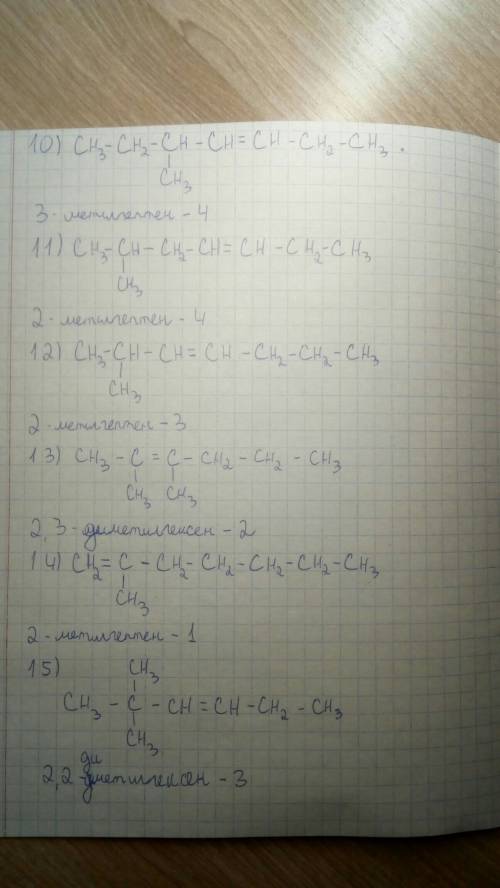 10) CH3-CH2-CH-CH=CH-CH2-CH3.
CH3
3-метилгептен-4
11) CH3-CH-CH2-CH=CH-CH2-CH3
CH3
2-метилгептен-4
12) CH3-CH-CH=CH-CH2-CH2-CH3
CH3
2-метилгептен-3
13) CH3-C=C-CH2-CH2-CH3
CH3 CH3
2,3-диметилгексен-2
14) CH2=C-CH2-CH2-CH2-CH2-CH3
CH3
2-метилгептен-1
15) CH3
CH3-C-CH=CH-CH2-CH3
CH3
2,2-диметилгексен-3